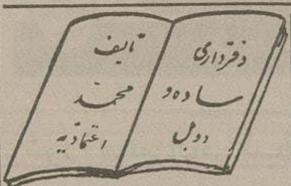 دفترداری
ساده و
دوبل
تالیف
محمد
اعتمادیه